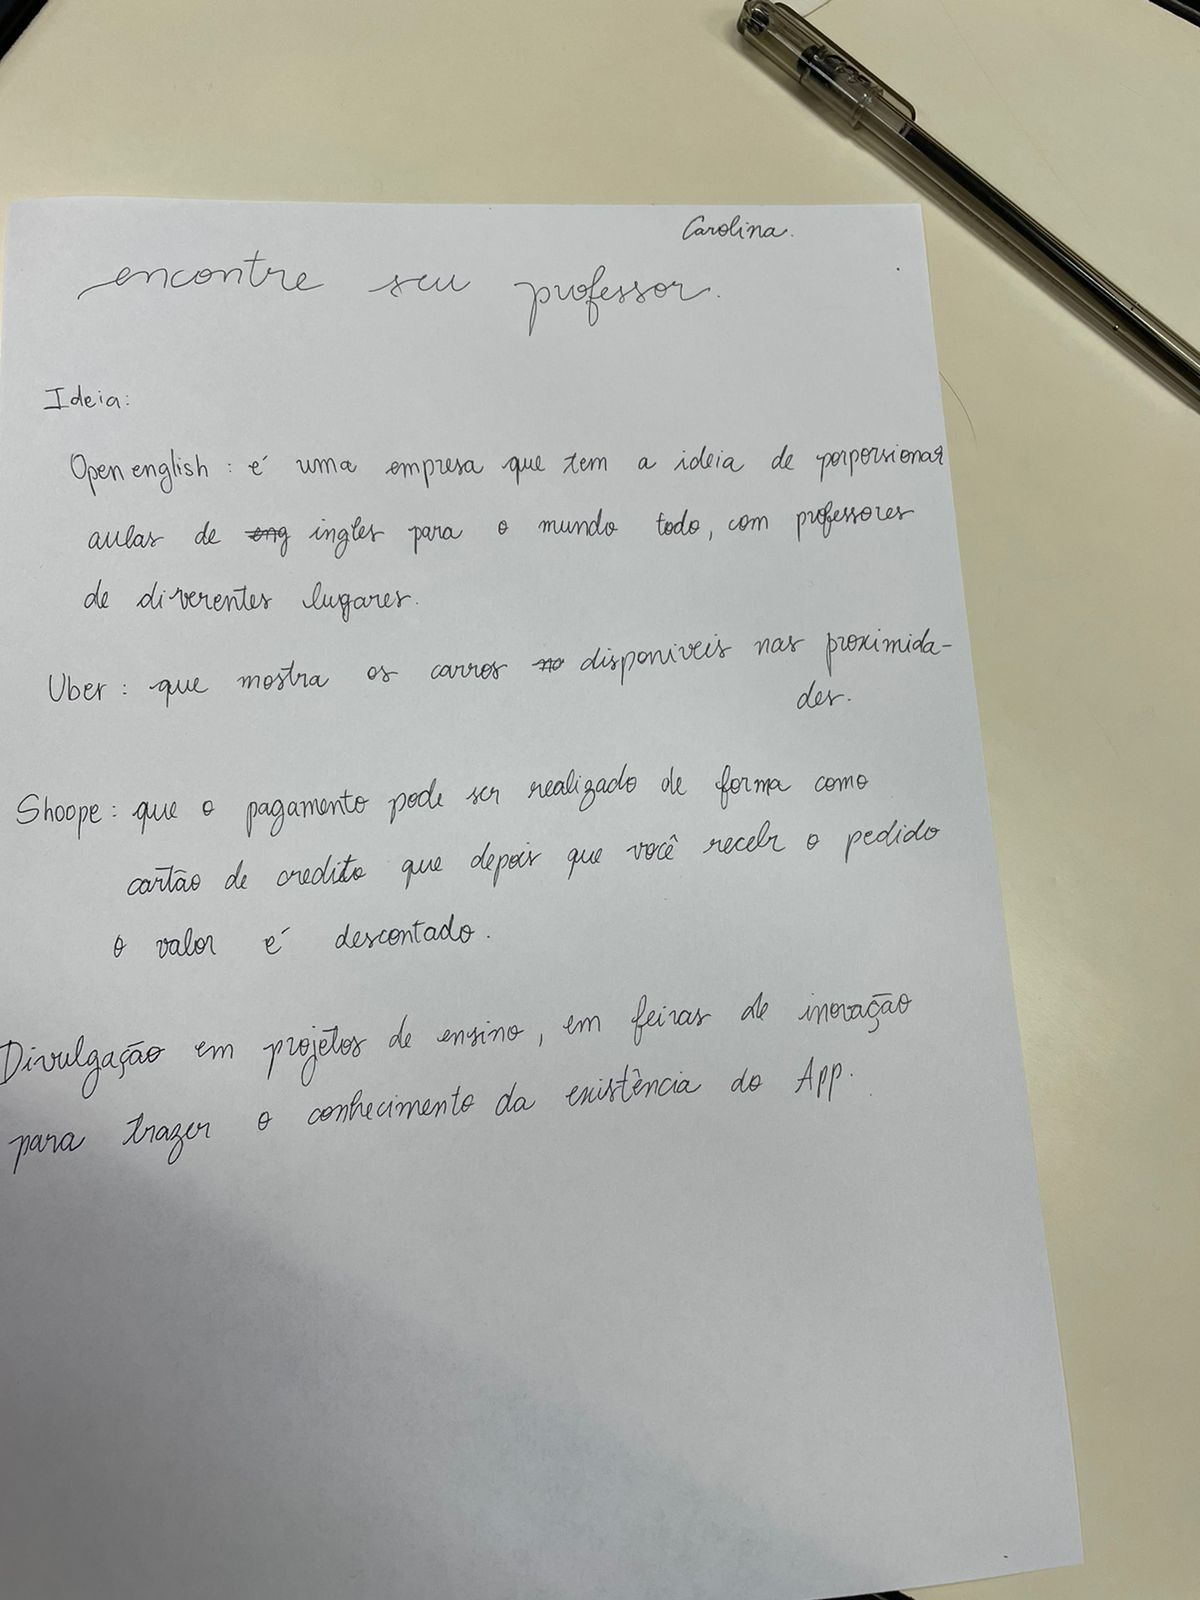 Carolina.
encontre seu professor.
Ideia:
Open english : é uma empresa que tem a ideia de porporsionar
aulas de eng ingles para o mundo todo, com professores
de diverentes lugares.
Uber : que mostra os carros no disponiveis nas proximida-
des.
Shoope : que o pagamento pode ser realizado de forma como
cartão de credito que depois que você receber o pedido
o valor é descontado.
Divulgação em projetos de ensino, em feiras de inovação
para trazer o conhecimento da existência do App.